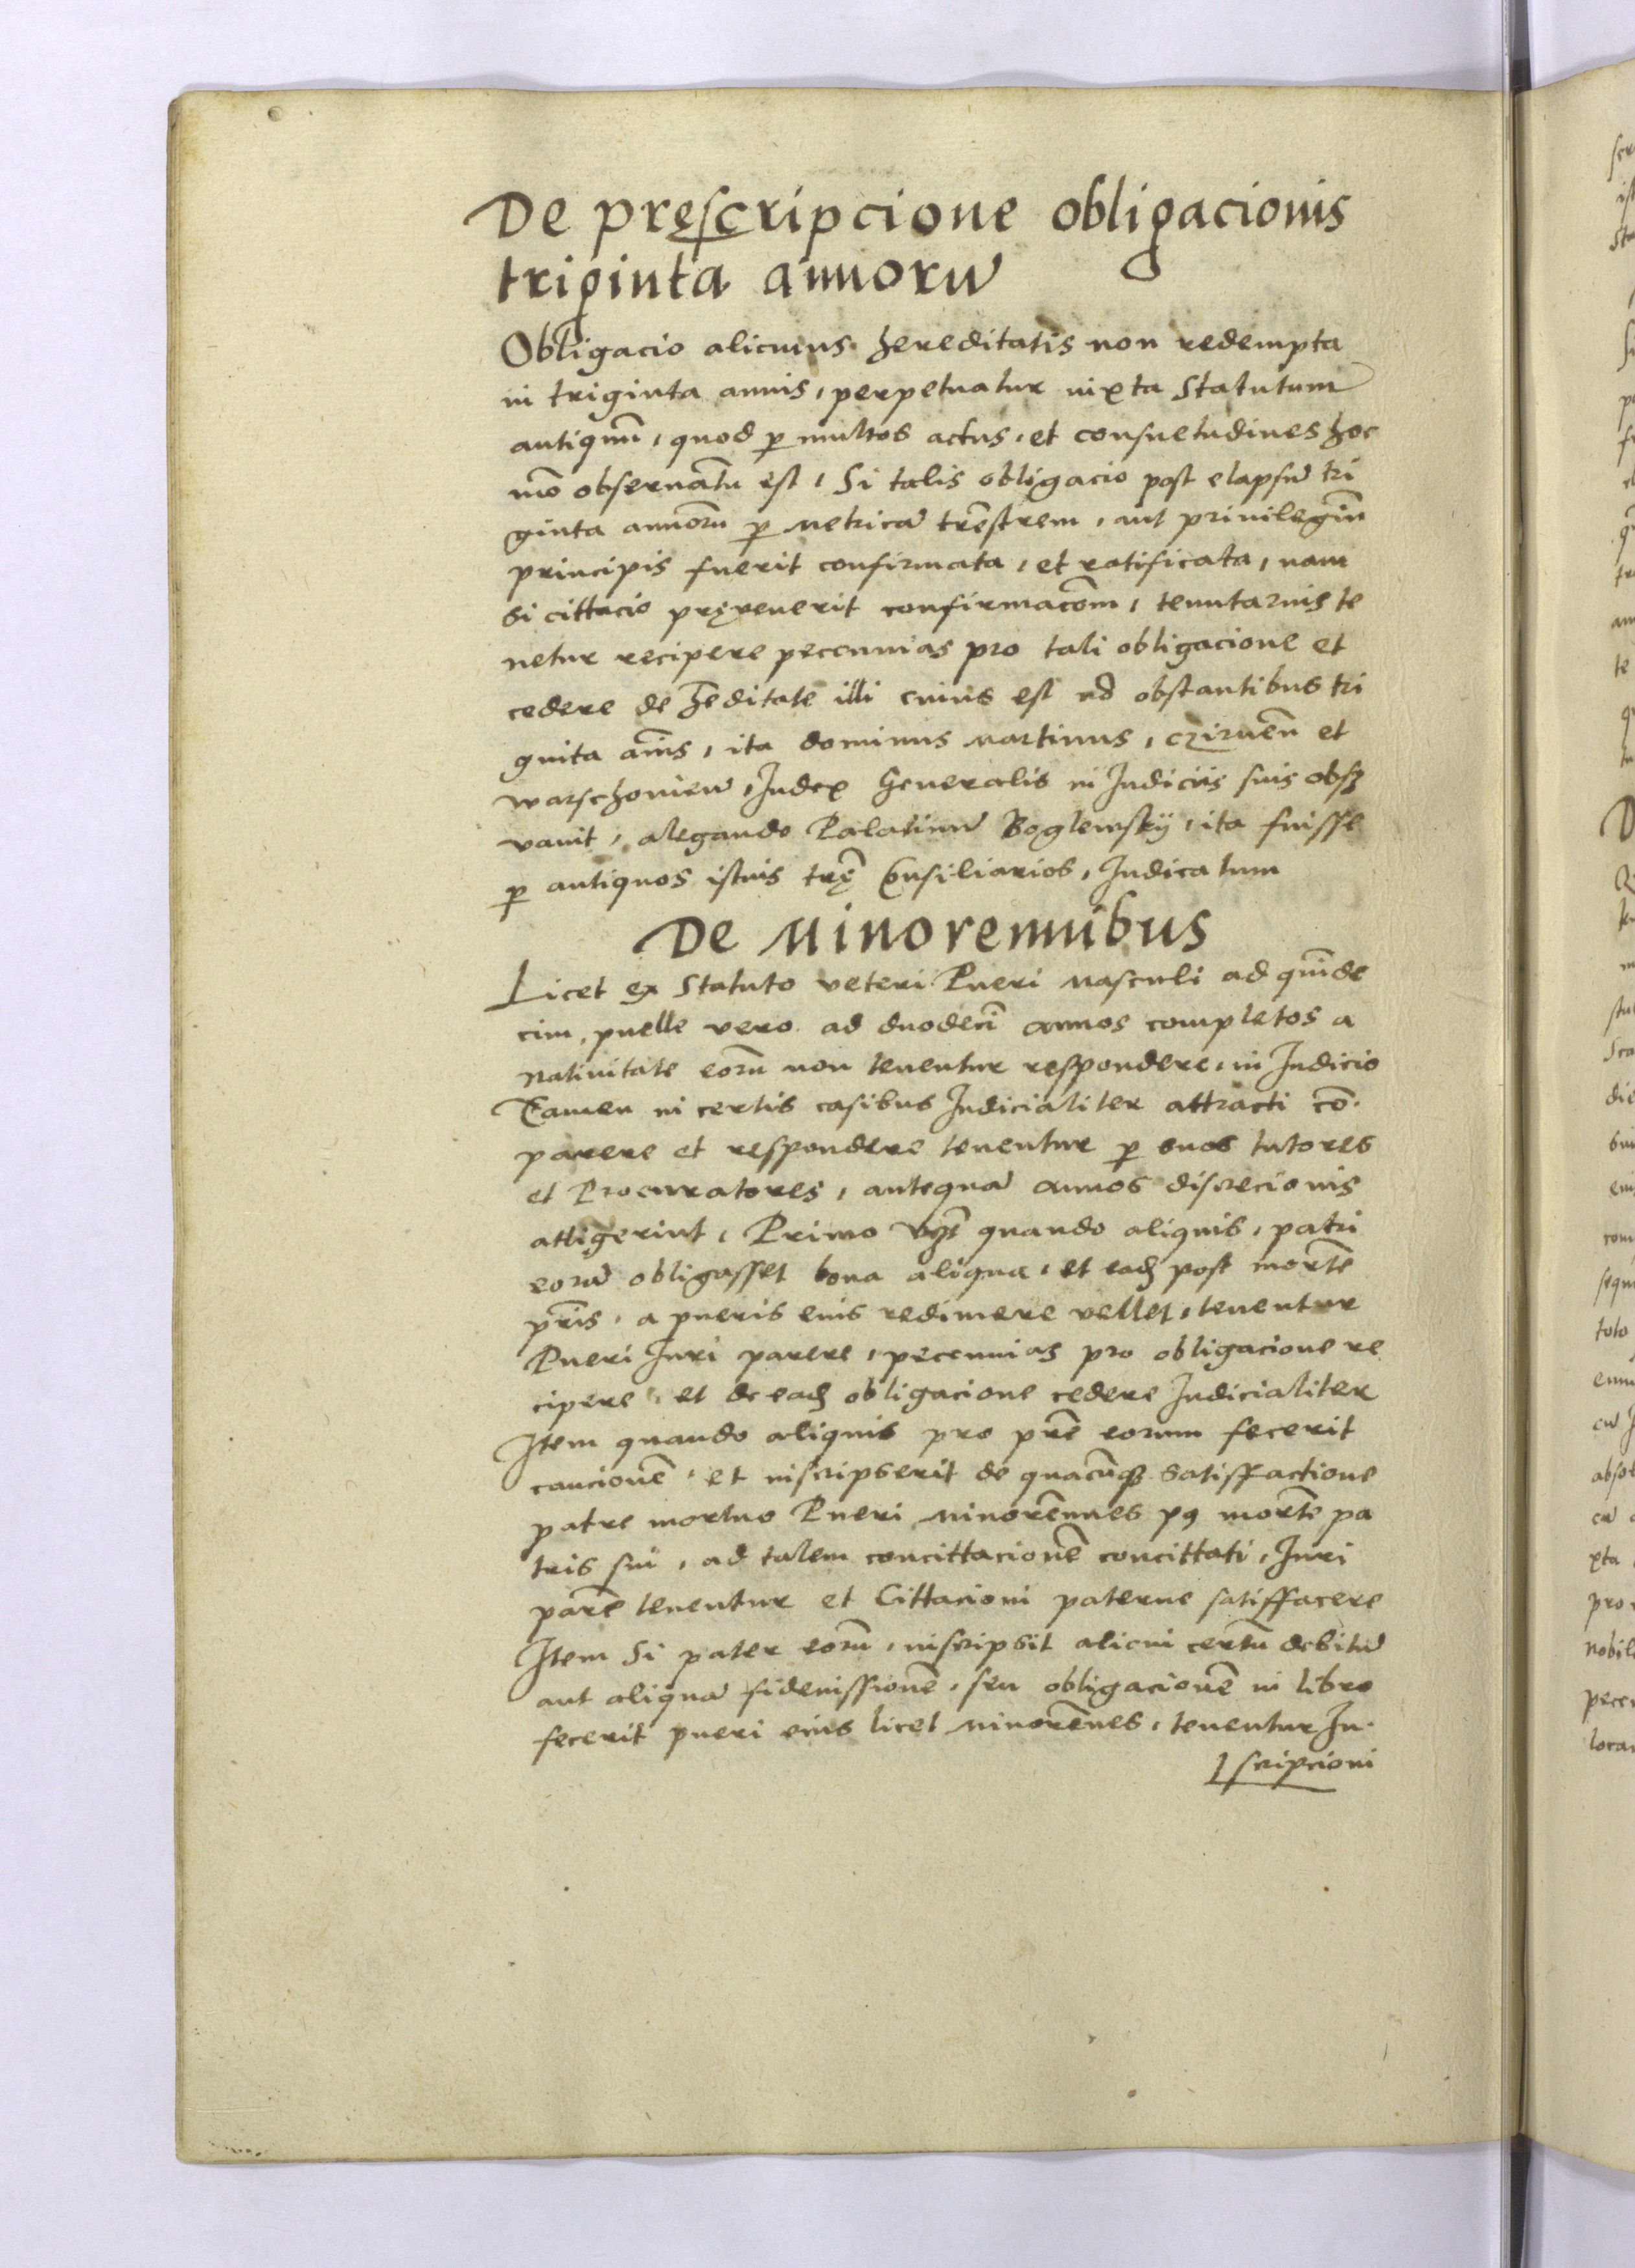 De pręscripcione obligacionis
triginta annorū
Obligacio alicuius hereditatis non redempta
in triginta annis, perpetuatur iuxta Statutum
antiquū, quod p multos actus, et consuetudines hoc
mō obseruatū est, Si talis obligacio post elapsū tri
ginta annorū p Metricā trēstrem, aut priuilegiū
principis fuerit confirmata, et ratificata, nam
si cittacio pręuenerit confirmacōm, tenutarius te
netur recipere pecunias pro tali obligacione et
cedere de hēditate illi cuius est nō obstantibus tri
ginta ānis, ita dominus Martinus, Czirnēn et
Warschouien, Iudex Generalis in Iudicijs suis obser
vauit, alegando Palatinū Boglewsky, ita fuisse
p antiquos istius trę Consiliarios, Iudicatum
De Minorennibus
Licet ex Statuto veteri Pueri Masculi ad quīde
cim, puelle vero ad duodecī annos completos a
Natiuitate eorū non tenentur respondere, in Iudicio
Tamen in certis casibus Iudicialiter attracti cō
parere et respondere tenentur p suos tutores
et Procuratores, antequā annos discrecionis
attigerint, Primo vʒt quando aliquis, patri
eorū obligasset bona aliqua, et eadē post mortē
pr̄is, a pueris eius redimere vellet, tenentur
Pueri Iuri parere, pecunias pro obligacione re
cipere, et de eadē obligacione cedere Iudicialiter
Item quando aliquis pro pr̄e eorum fecerit
caucionē, et inscripserit de quacūqʒ satisfactione
patre mortuo Pueri Minorēnnes pꝯ mortē pa
tris sui, ad talem concittacionē concittati, Iuri
parē tenentur et Cittacioni paterne satisffacere
Item Si pater eorū, inscripsit alicui certū debitū
aut aliquā fideiussionē, seu obligacionē in libro
fecerit pueri eius licet Minorēnes, tenentur In
scripcioni